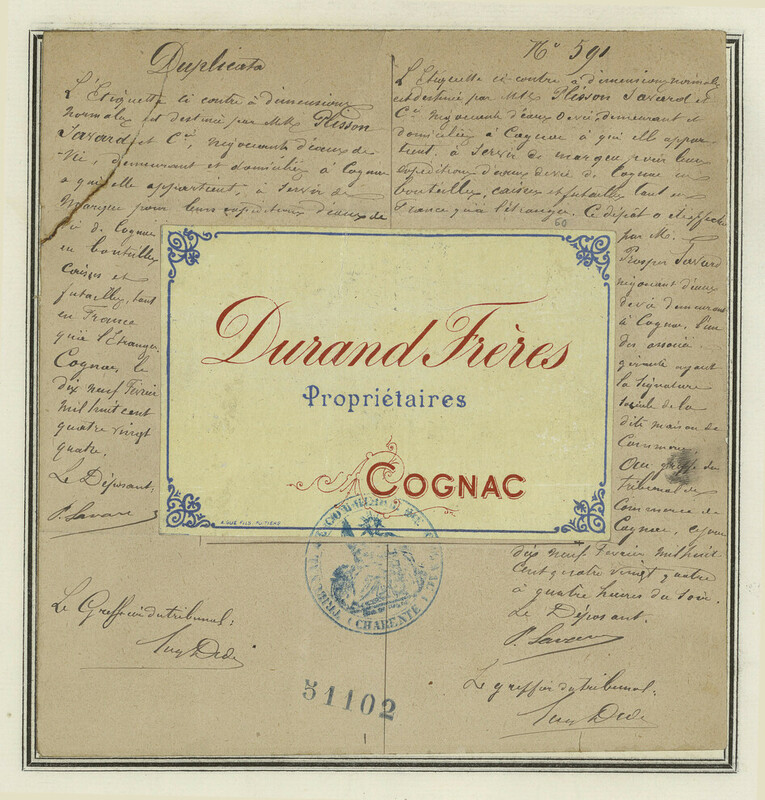 Duplicata
L'Etiquette ci contre à dimensions
normales est destinée par MM. Plisson
Savard et Cie, négociants d'eaux de
vie, demeurant et domiciliés à Cognac
à qui elle appartient, à servir de
marque pour leurs expéditions d'eaux de
vie de Cognac
en bouteilles
caisses et
futailles, tant
en France
qu'à l'Etranger.
Cognac, le
dix neuf Février
mil huit cent
quatre vingt
quatre.
Le Déposant,
P. Savard
Le Greffier du tribunal:
No 591
L'Etiquette ci-contre à dimensions normales
est destinée par MM. Plisson Savard et
Cie négociants d'eaux de vie, demeurant et
domiciliés à Cognac à qui elle appar-
tient, à servir de marque pour leurs
expéditions d'eaux de vie de Cognac en
bouteilles, caisses et futailles tant en
France qu'à l'étranger. Ce dépôt a été effectué
60
par M.
Prosper Savard
négociant d'eaux
de vie demeurant
à Cognac, l'un
des associés
gérants ayant
la signature
sociale de la
dite maison de
Commerce
Au greffe du
tribunal de
Commerce de
Cognac, ce jour
dix neuf Février mil huit
cent quatre vingt quatre
à quatre heures du soir.
Le Déposant.
P. Savard
Le greffier du tribunal:
Durand Frères
Propriétaires
COGNAC
TRIBUNAL DE COMMERCE DE COGNAC
(CHARENTE)
51102